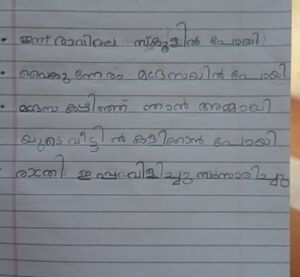 • ഇന്ന് രാവിലെ സ്കൂളിൽ പോയി
• വൈകുന്നേരം മദ്രസയിൽ പോയി
• മദ്രസ കഴിഞ്ഞ് ഞാൻ അമ്മായി
യുടെ വീട്ടിൽ കളിക്കാൻ പോയി
• രാത്രി വിളിച്ചു സംസാരിച്ചു